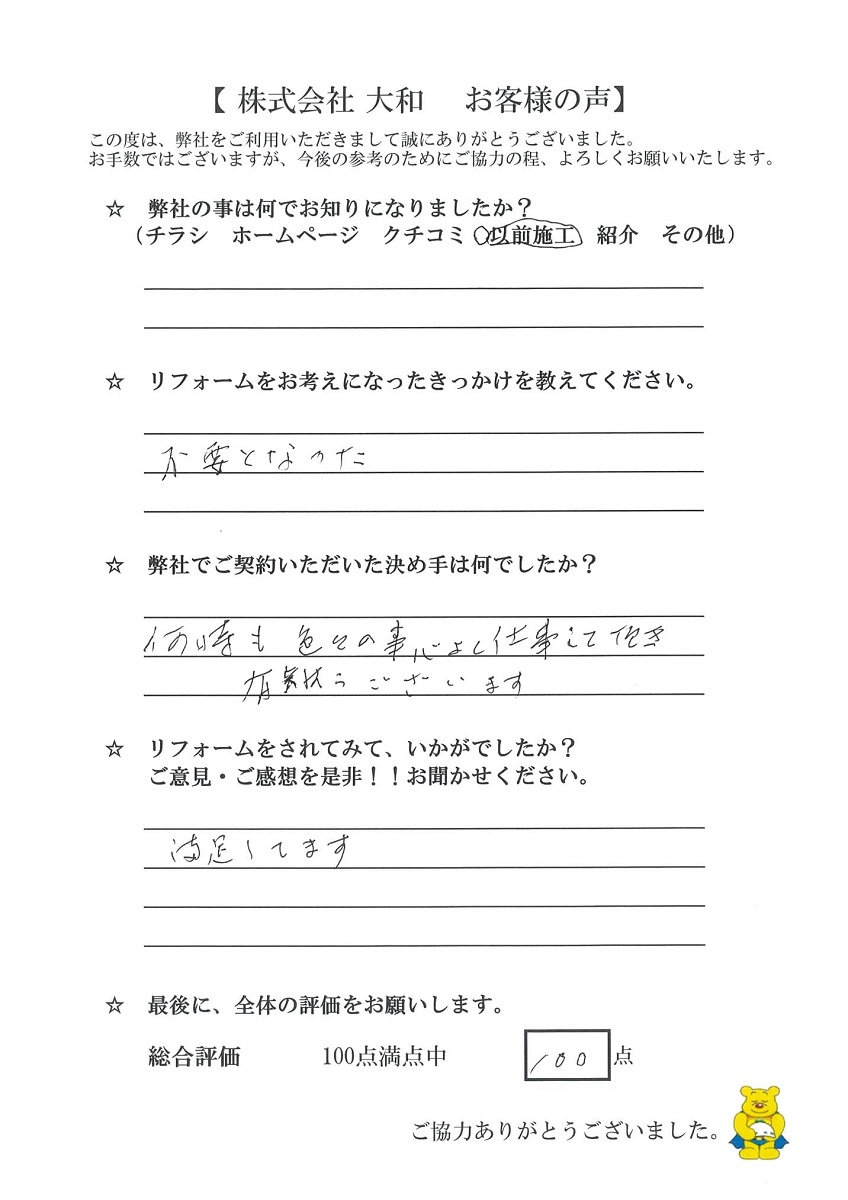 【 株式会社 大和　お客様の声】
この度は、弊社をご利用いただきまして誠にありがとうございました。
お手数ではございますが、今後の参考のためにご協力の程、よろしくお願いいたします。
☆　弊社の事は何でお知りになりましたか？
（チラシ　ホームページ　クチコミ　以前施工　紹介　その他）
☆　リフォームをお考えになったきっかけを教えてください。
不要となった
☆　弊社でご契約いただいた決め手は何でしたか？
何時も 色々の事心よく仕事して頂き
有難うございます
☆　リフォームをされてみて、いかがでしたか？
ご意見・ご感想を是非！！お聞かせください。
満足してます
☆　最後に、全体の評価をお願いします。
総合評価　100点満点中　100 点
ご協力ありがとうございました。